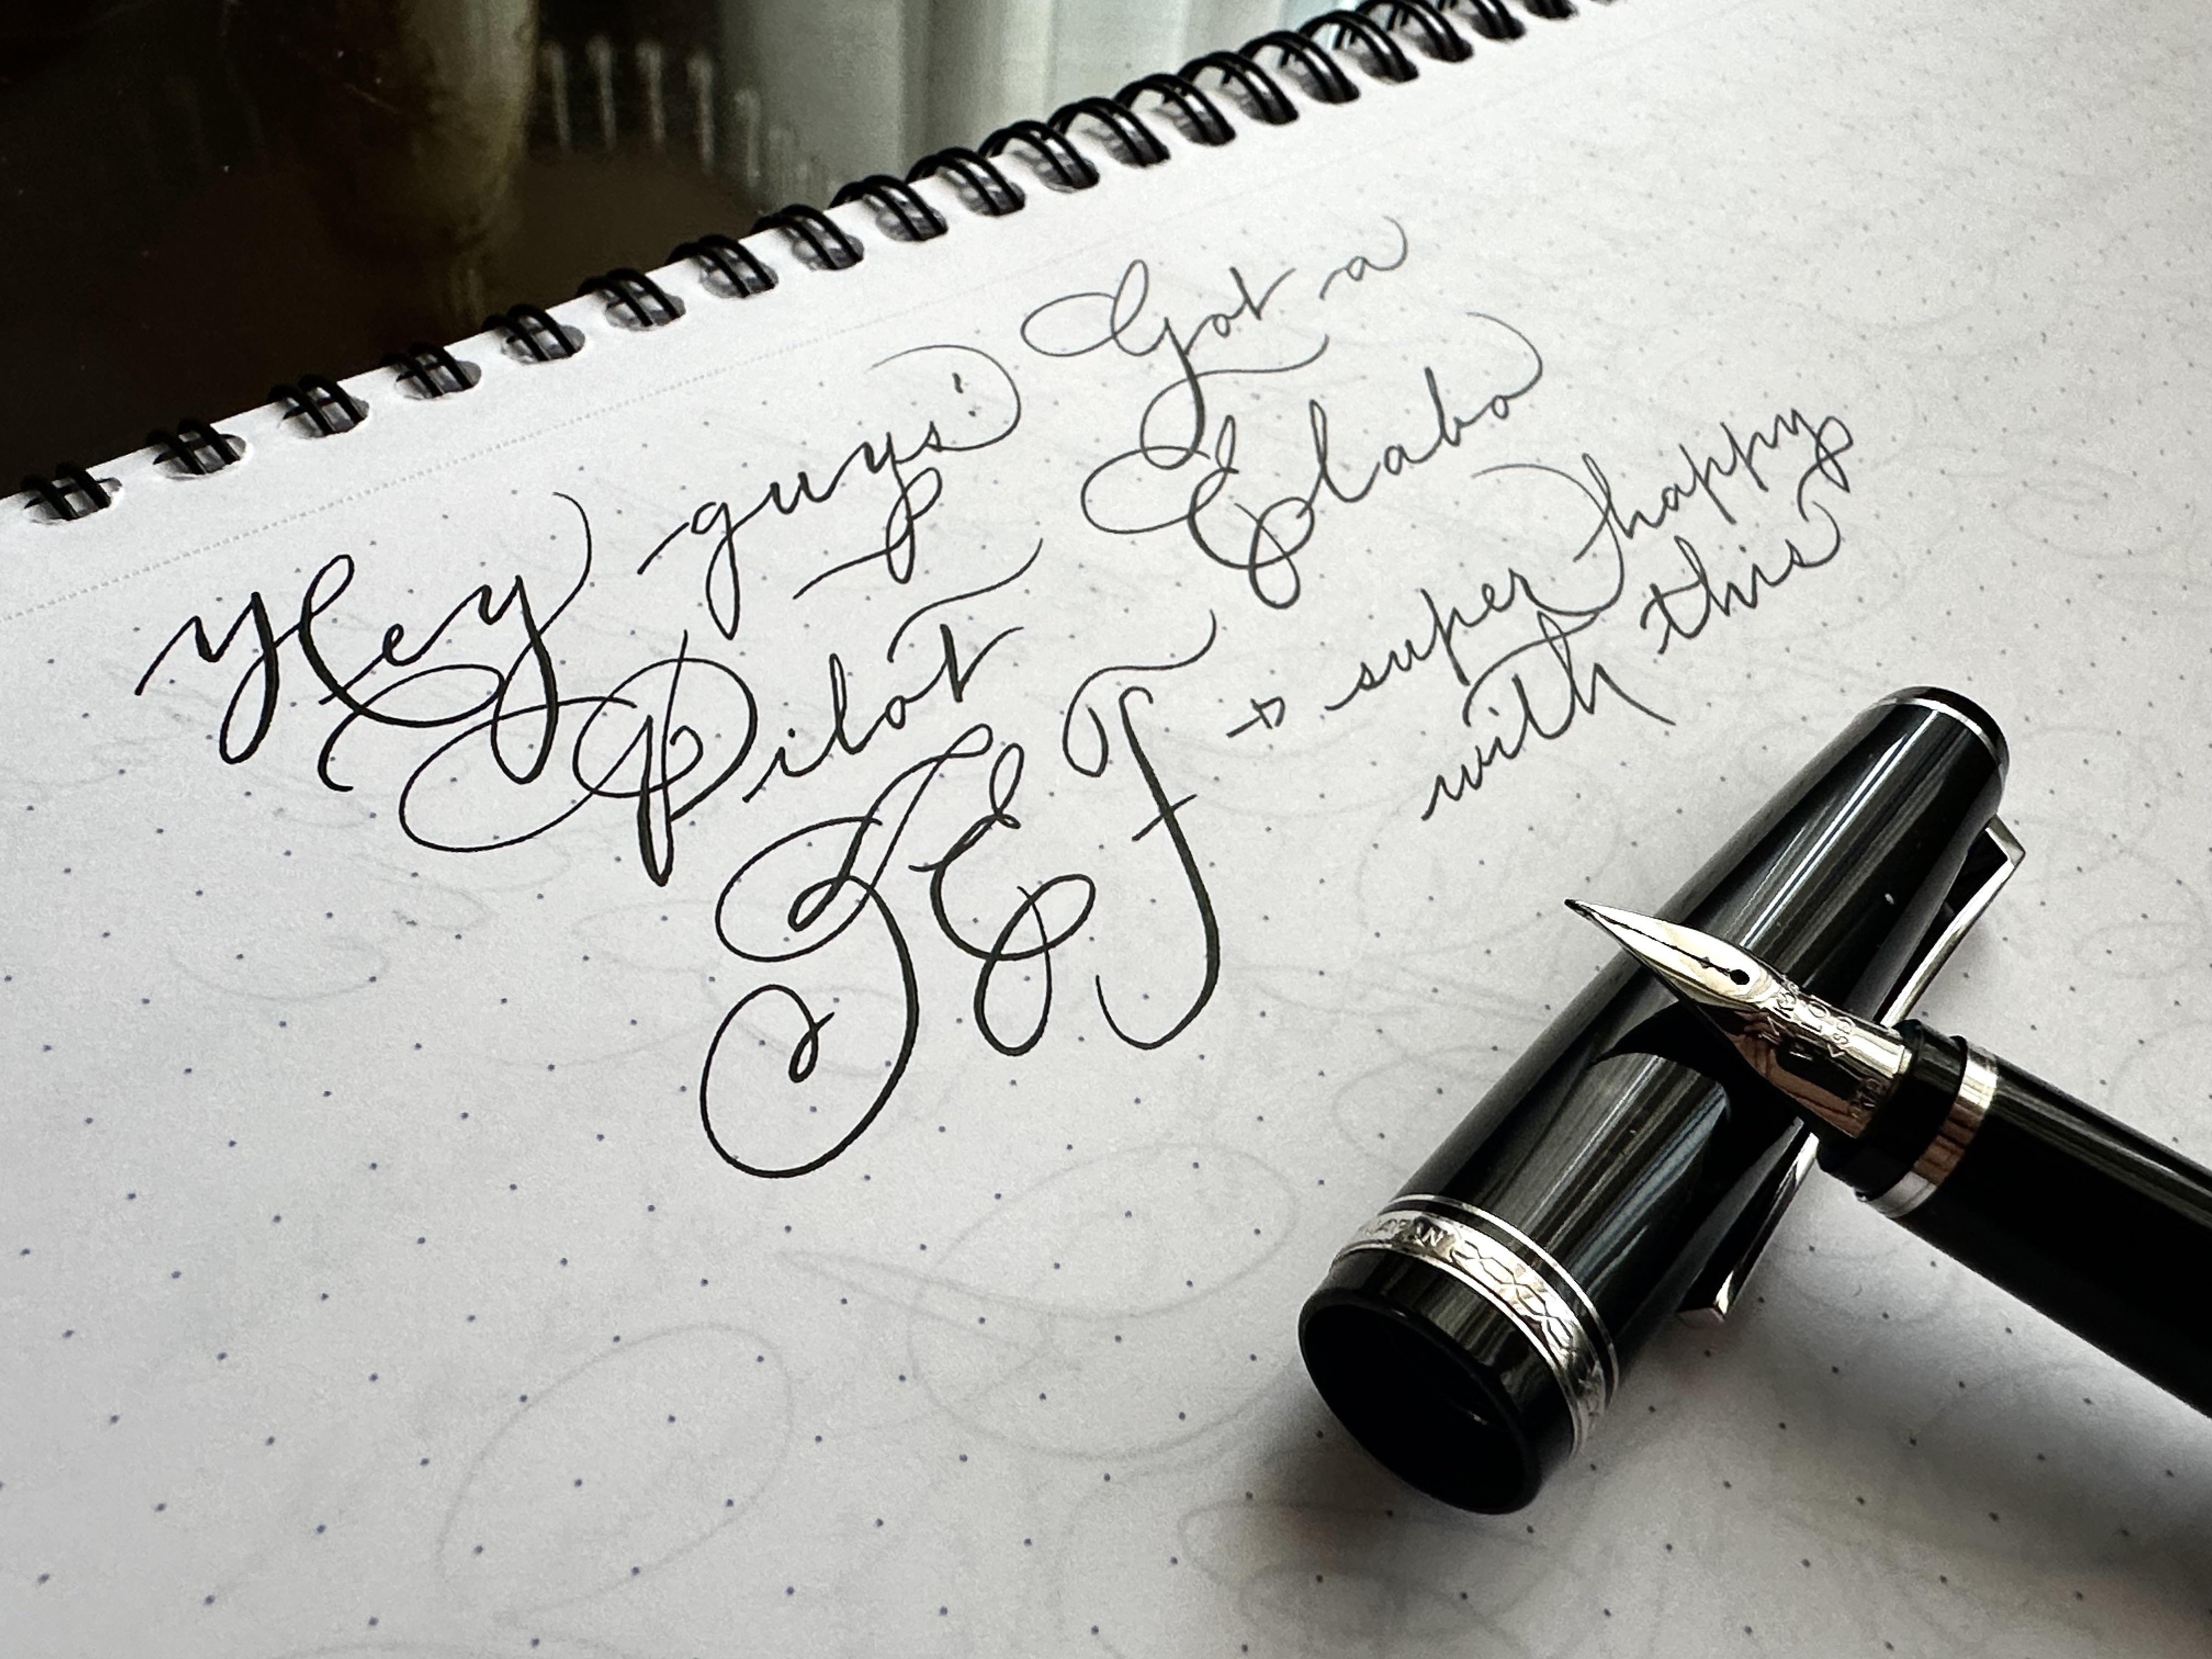 Hey guys! Got a
Pilot Elabo
SEF + super happy
with this
JAPAN